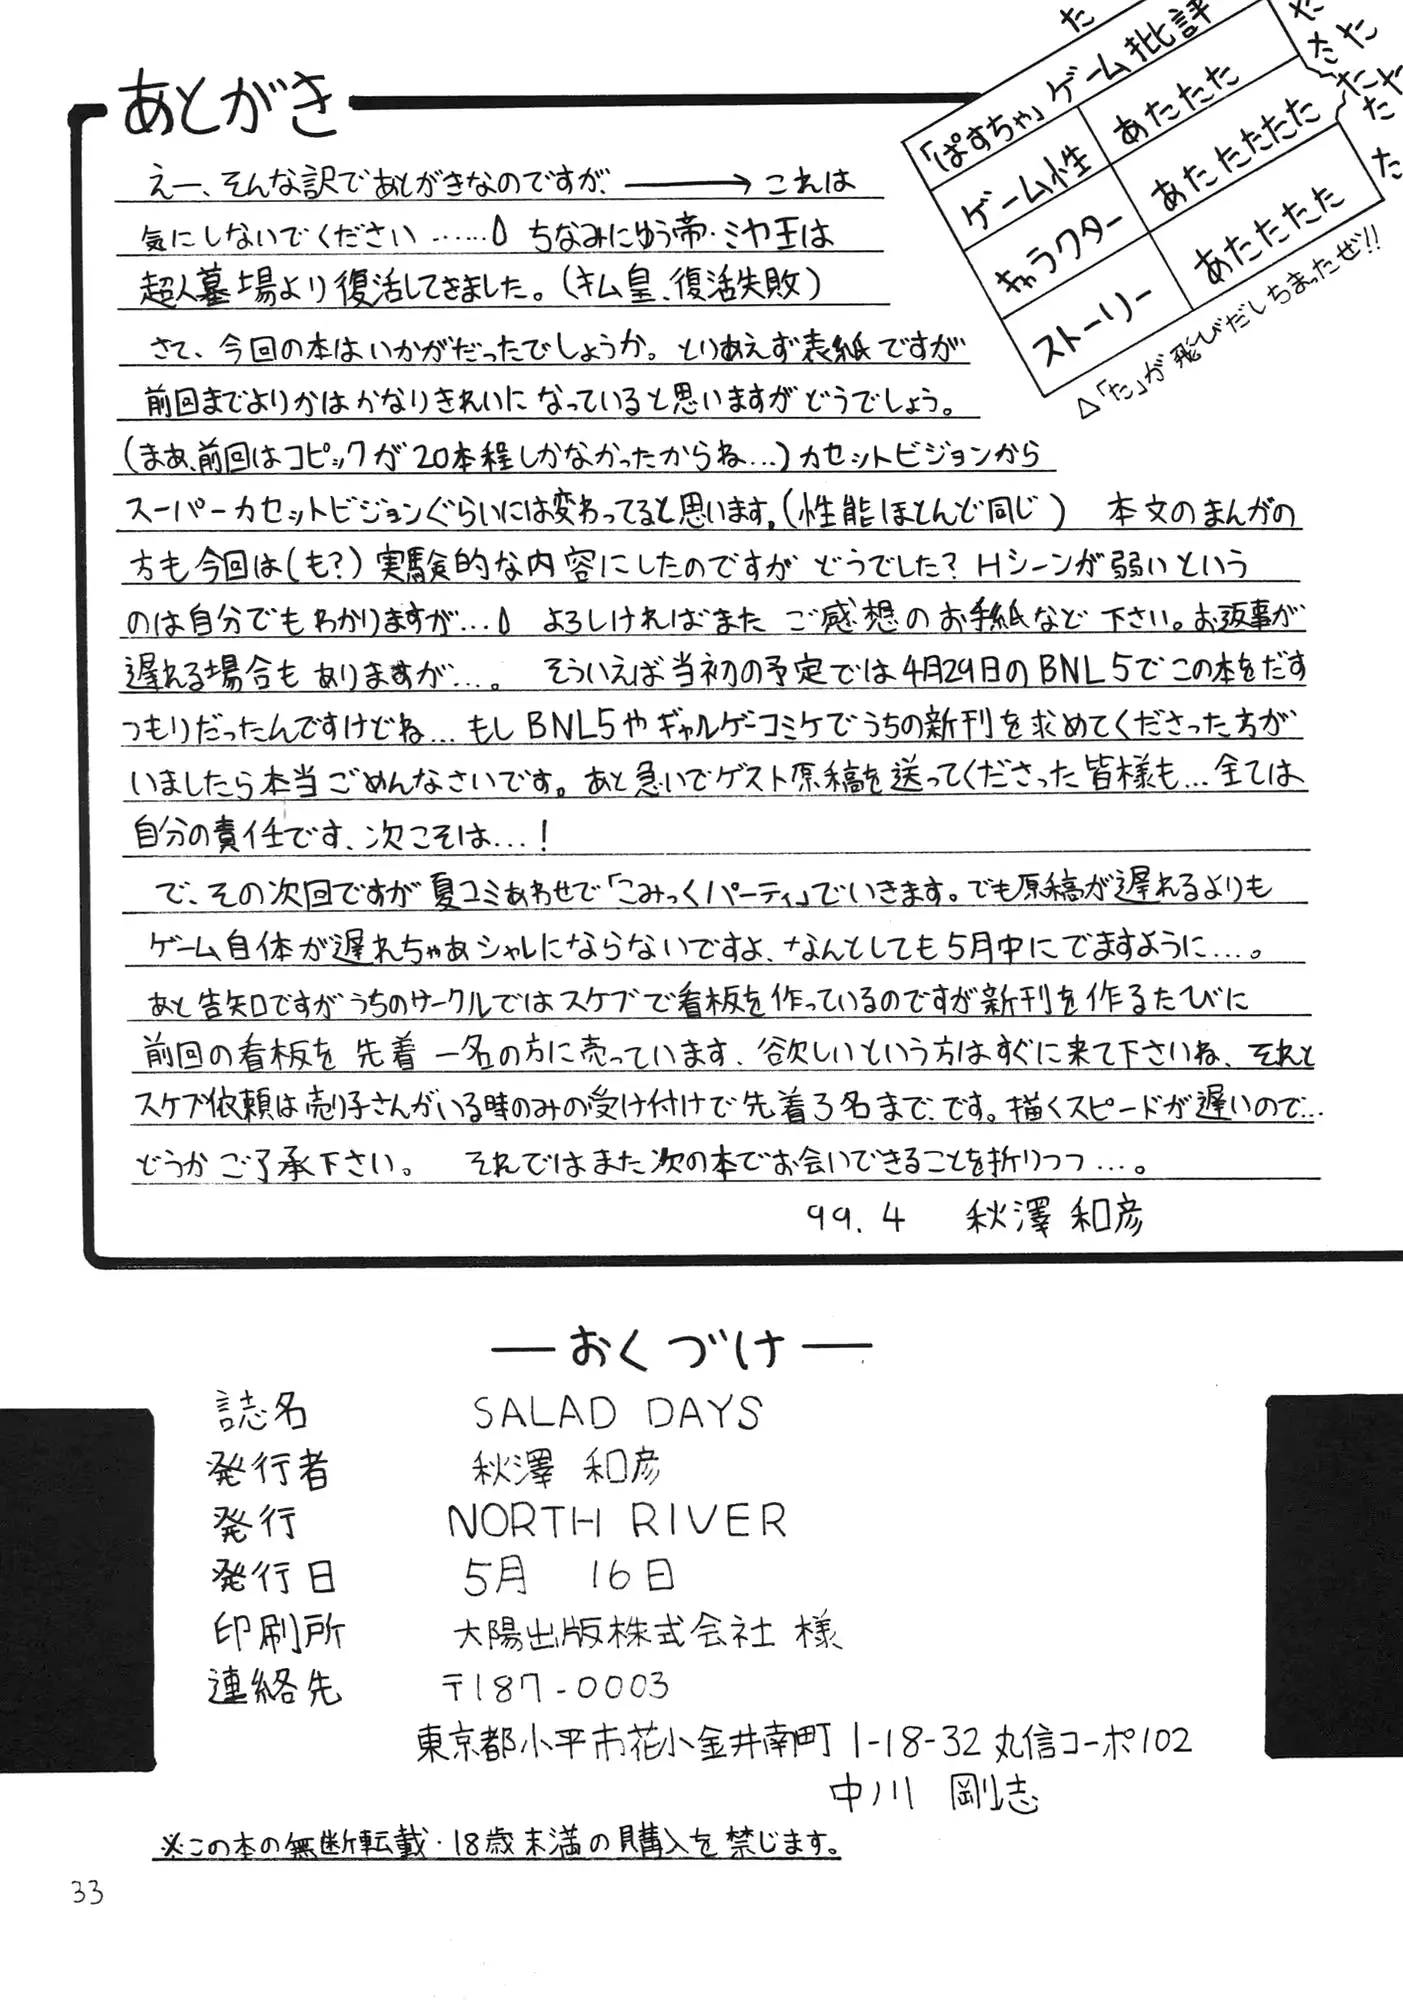 あとがき
えー、そんな訳であとがきなのですが、――→これは
気にしないでください……。ちなみにゆう帝・ミヤ王は
超人墓場より復活してきました。(キム皇、復活失敗)
さて、今回の本はいかがだったでしょうか。とりあえず表紙ですが
前回までよりかはかなりきれいになっていると思いますがどうでしょう。
(まあ、前回はコピックが20本程しかなかったからね…)カセットビジョンから
スーパーカセットビジョンぐらいには変わってると思います。(性能ほとんど同じ) 本文のまんがの
方も今回は(も?)実験的な内容にしたのですがどうでした?Hシーンが弱いという
のは自分でもわかりますが…。よろしければまたご感想のお手紙など下さい。お返事が
遅れる場合もありますが…。 そういえば当初の予定では4月29日のBNL5でこの本をだす
つもりだったんですけどね…もしBNL5やギャルゲーコミケでうちの新刊を求めてくださった方が
いましたら本当ごめんなさいです。あと急いでゲスト原稿を送ってくださった皆様も…全ては
自分の責任です、次こそは…!
で、その次回ですが夏コミあわせで「こみっくパーティ」でいきます。でも原稿が遅れるよりも
ゲーム自体が遅れちゃあシャレにならないですよ、なんとしても5月中にでますように…。
あと告知ですがうちのサークルではスケブで看板を作っているのですが新刊を作るたびに
前回の看板を先着一名の方に売っています、欲しいという方はすぐに来て下さいね、それと
スケブ依頼は売り子さんがいる時のみの受け付けで先着3名まで、です。描くスピードが遅いので…
どうかご了承下さい。 それではまた次の本でお会いできることを折りつつ…。
99.4 秋澤 和彦
た
「ぱすちゃ」ゲーム批評
ゲーム性 あたたた
キャラクター あたたたたた
ストーリー あたたたた
た
た
た
た
た
た
た
た
△「た」が飛びだしちまったぜ!!
―おくづけ―
誌名 SALAD DAYS
発行者 秋澤 和彦
発行 NORTH RIVER
発行日 5月 16日
印刷所 大陽出版株式会社 様
連絡先 〒187-0003
東京都小平市花小金井南町1-18-32丸信コーポ102
中川 剛志
※この本の無断転載・18歳未満の購入を禁じます。
33